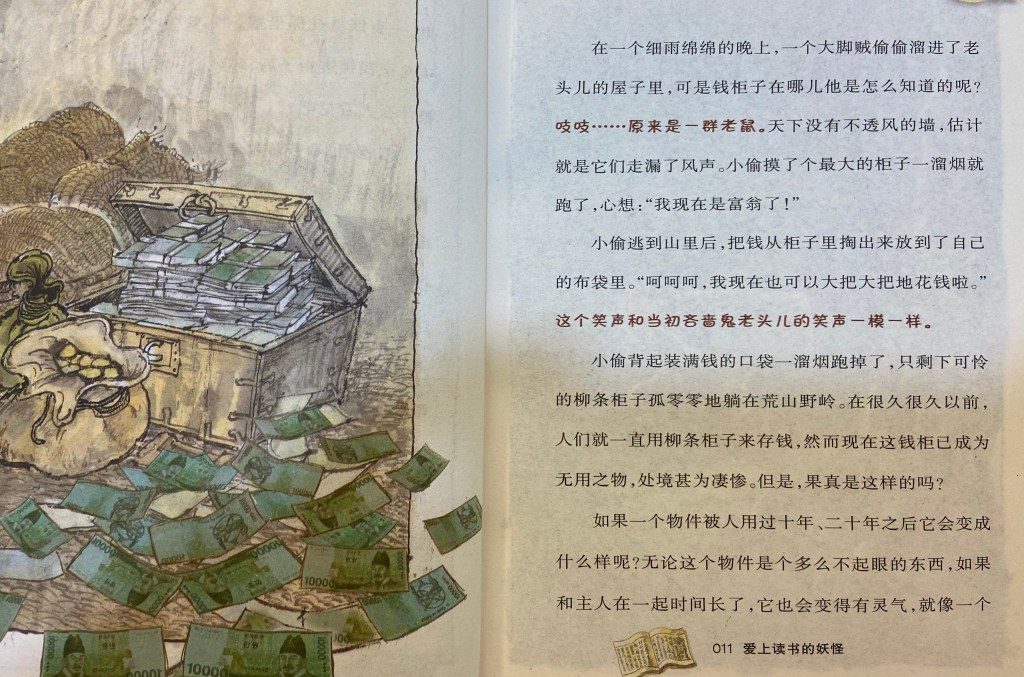 在一个细雨绵绵的晚上，一个大脚贼偷偷溜进了老
头儿的屋子里，可是钱柜子在哪儿他是怎么知道的呢？
吱吱……原来是一群老鼠。天下没有不透风的墙，估计
就是它们走漏了风声。小偷摸了个最大的柜子一溜烟就
跑了，心想：“我现在是富翁了！”
小偷逃到山里后，把钱从柜子里掏出来放到了自己
的布袋里。“呵呵呵，我现在也可以大把大把地花钱啦。”
这个笑声和当初吝啬鬼老头儿的笑声一模一样。
小偷背起装满钱的口袋一溜烟跑掉了，只剩下可怜
的柳条柜子孤零零地躺在荒山野岭。在很久很久以前，
人们就一直用柳条柜子来存钱，然而现在这钱柜已成为
无用之物，处境甚为凄惨。但是，果真是这样的吗？
如果一个物件被人用过十年、二十年之后它会变成
什么样呢？无论这个物件是个多么不起眼的东西，如果
和主人在一起时间长了，它也会变得有灵气，就像一个
011 爱上读书的妖怪
10000
10000
10000
10000
10000
10000